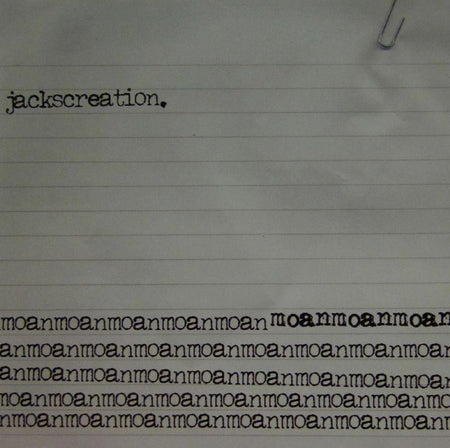 jackscreation.
moanmoanmoanmoanmoanmoanmoanmoan
anmoanmoanmoanmoanmoanmoanmoanmoan
anmoanmoanmoanmoanmoanmoanmoanmoan
moanmoanmoanmoanmoanmoanmoanmoanmo
nmoanmoanmoanmoanmoanmoanmoanmoan